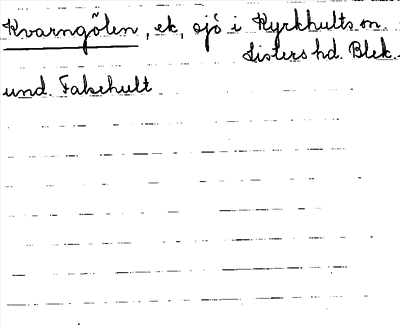 Kvarngölen, ek, sjö i Kyrkhults sn.
Listers hd. Blek.
und. Falsehult